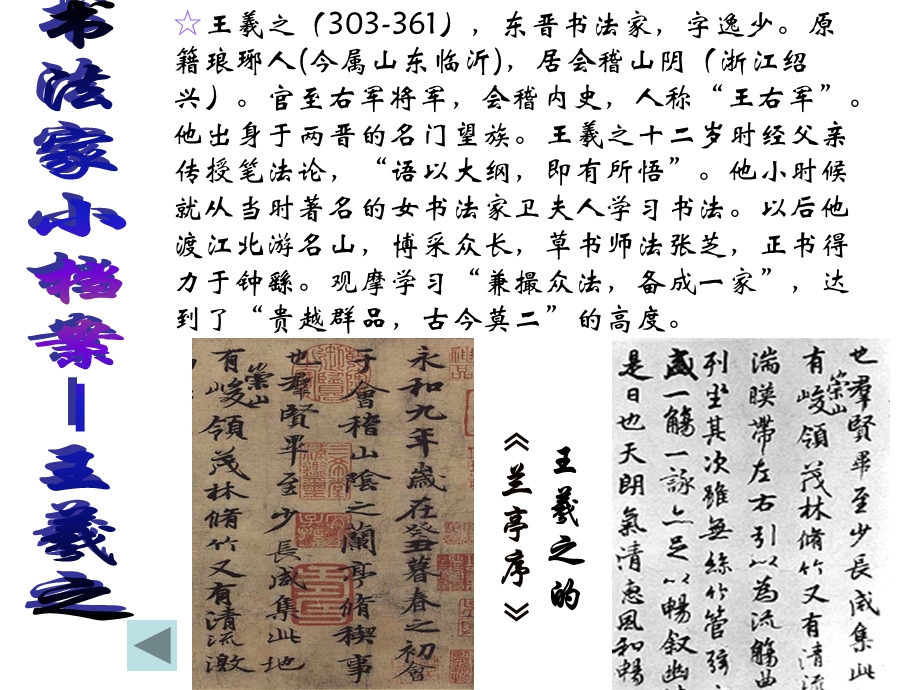 书法家小档案—王羲之
☆王羲之（303-361），东晋书法家，字逸少。原
籍琅琊人(今属山东临沂)，居会稽山阴（浙江绍
兴）。官至右军将军，会稽内史，人称“王右军”。
他出身于两晋的名门望族。王羲之十二岁时经父亲
传授笔法论，“语以大纲，即有所悟”。他小时候
就从当时著名的女书法家卫夫人学习书法。以后他
渡江北游名山，博采众长，草书师法张芝，正书得
力于钟繇。观摩学习“兼撮众法，备成一家”，达
到了“贵越群品，古今莫二”的高度。
永和九年歲在癸丑暮春之初會
于會稽山陰之蘭亭脩稧事
也羣賢畢至少長咸集此地
有崇山峻領茂林脩竹又有清流激
王羲之的
《兰亭序》
也羣賢畢至少長咸集此
有崇山峻領茂林脩竹又有清流
湍暎帶左右引以為流觴曲
列坐其次雖無絲竹管弦
盛一觴一詠亦足以暢叙幽
是日也天朗氣清惠風和暢